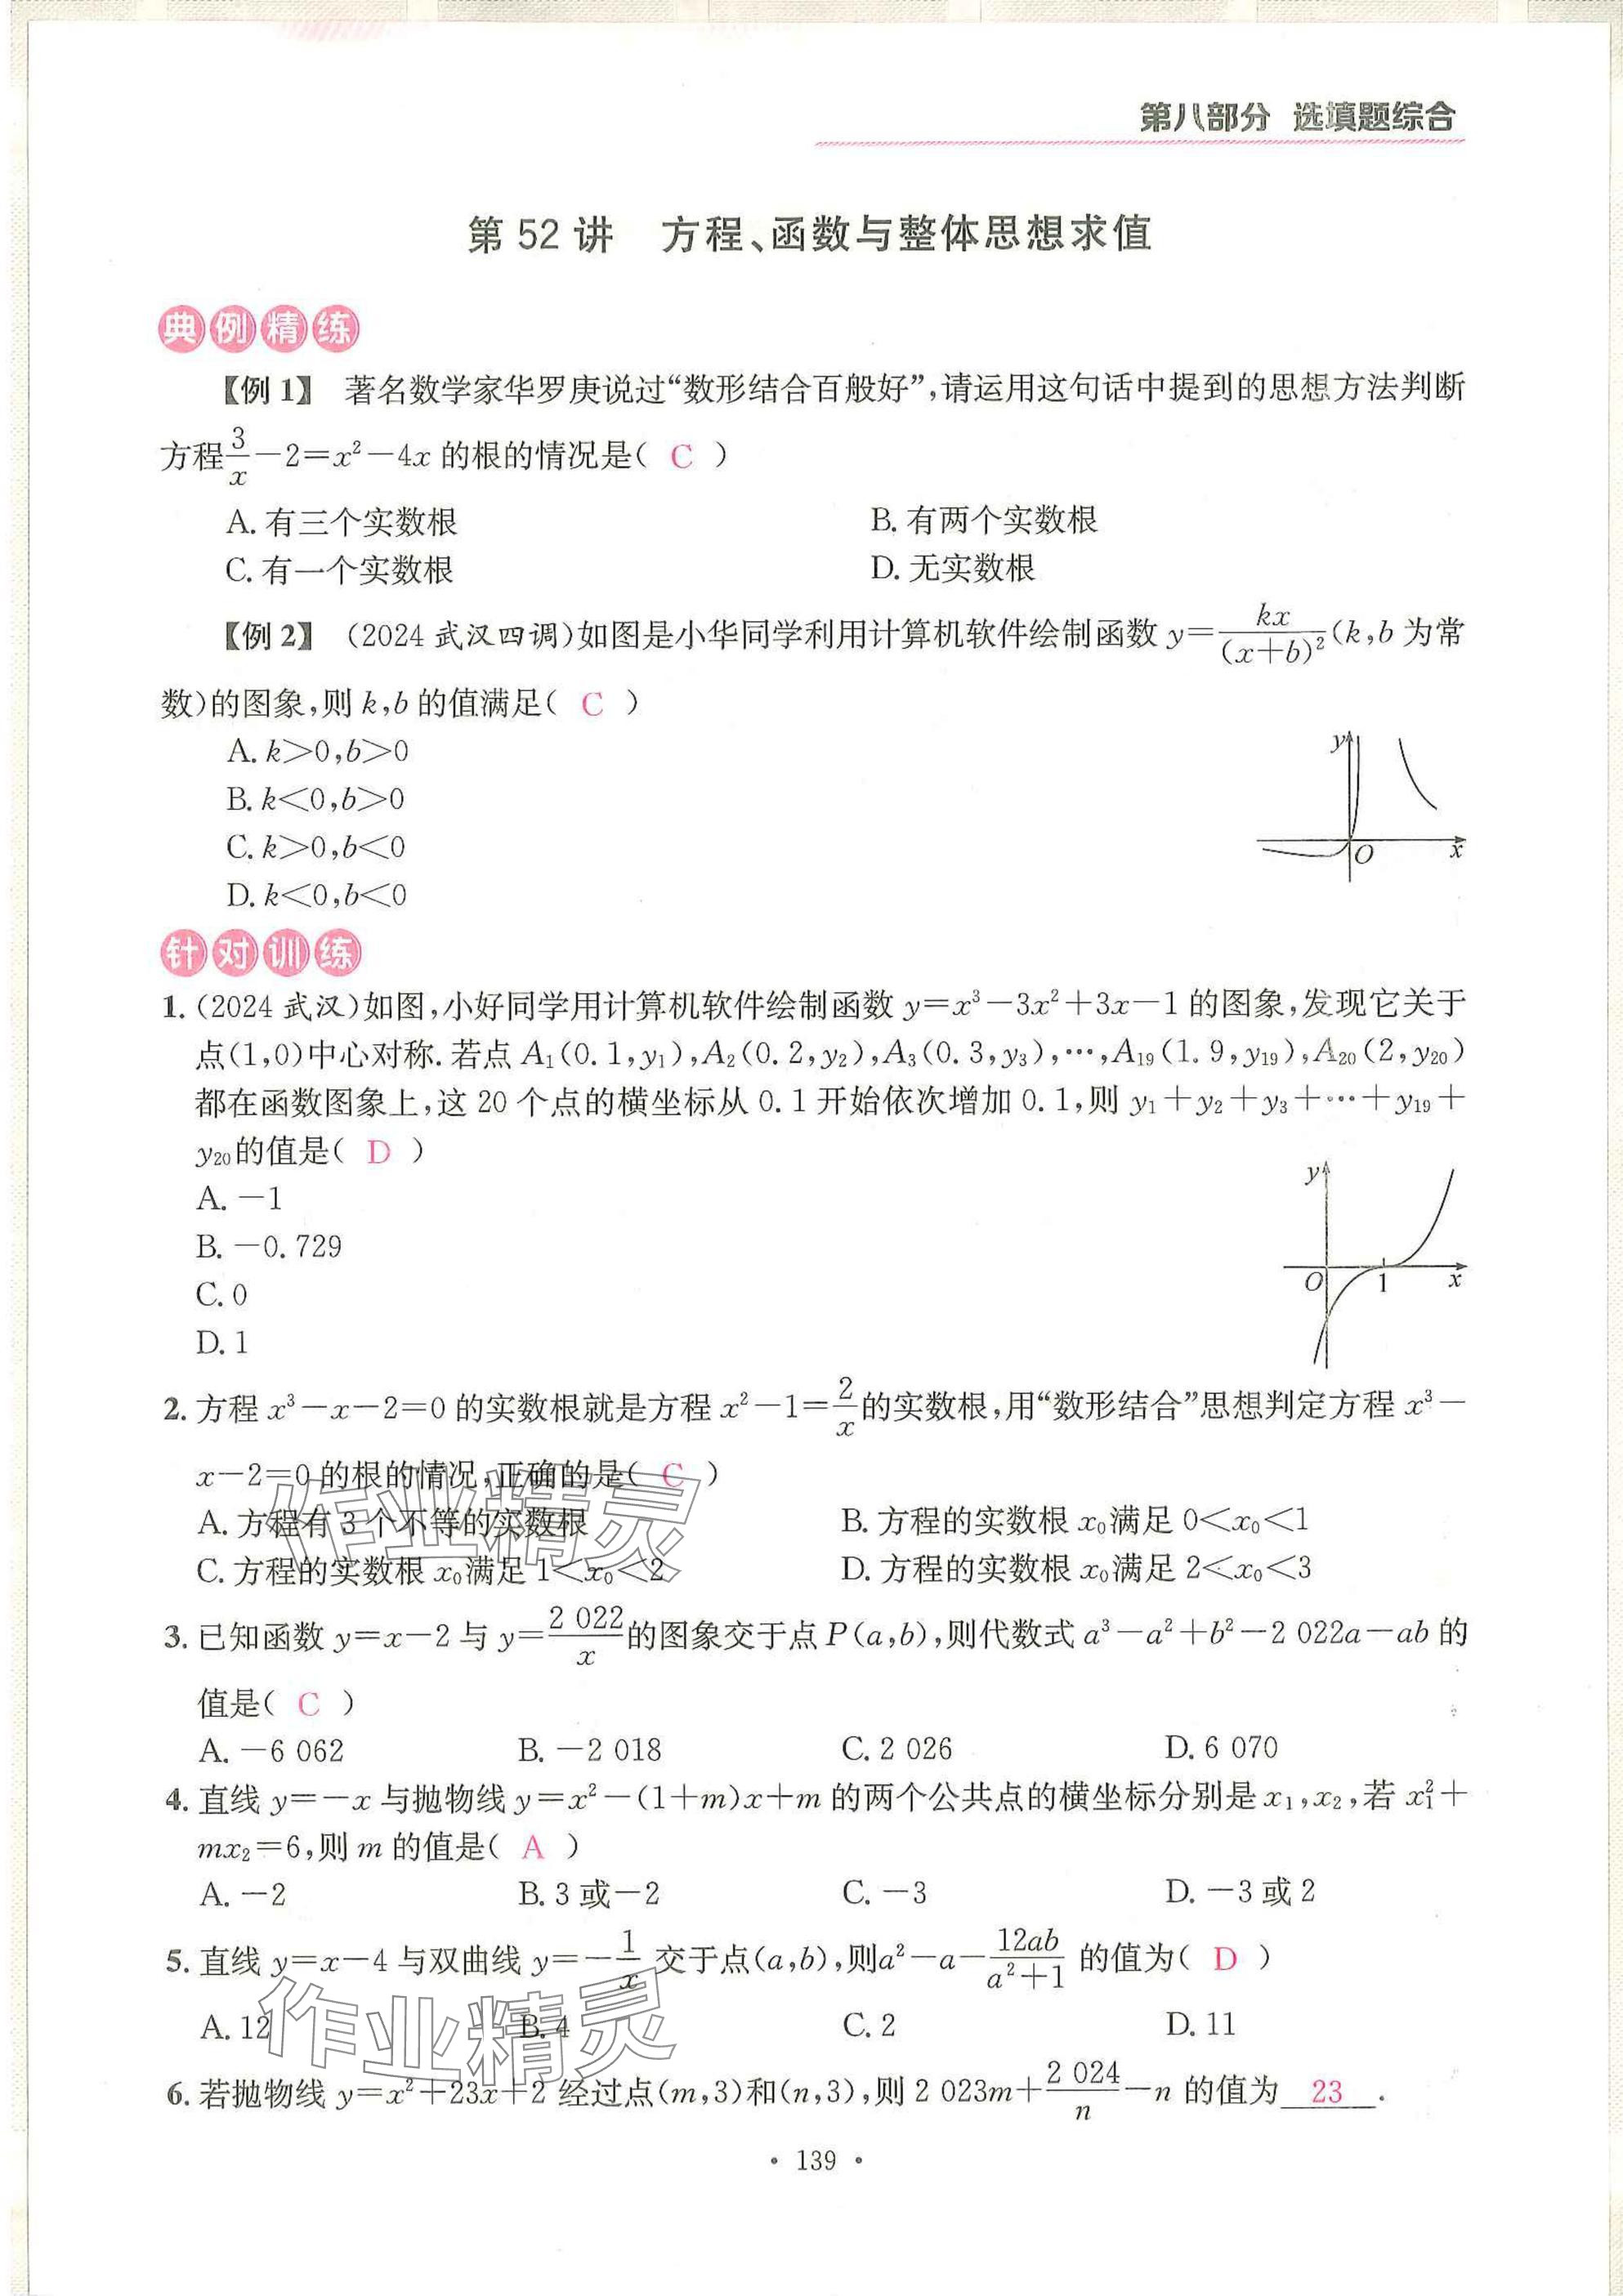 第八部分 选填题综合
第 52 讲 方程、函数与整体思想求值
典例精练
【例 1】 著名数学家华罗庚说过“数形结合百般好”,请运用这句话中提到的思想方法判断
方程3/x-2=x²-4x 的根的情况是( C )
A. 有三个实数根 B. 有两个实数根
C. 有一个实数根 D. 无实数根
【例 2】 (2024 武汉四调)如图是小华同学利用计算机软件绘制函数 y=kx/(x+b)²(k,b 为常
数)的图象,则 k,b 的值满足( C )
A. k>0,b>0
B. k<0,b>0
C. k>0,b<0
D. k<0,b<0
y
O
x
针对训练
1. (2024 武汉)如图,小好同学用计算机软件绘制函数 y=x³-3x²+3x-1 的图象,发现它关于
点(1,0)中心对称. 若点 A₁(0.1,y₁),A₂(0.2,y₂),A₃(0.3,y₃),…,A₁₉(1.9,y₁₉),A₂₀(2,y₂₀)
都在函数图象上,这 20 个点的横坐标从 0.1 开始依次增加 0.1,则 y₁+y₂+y₃+…+y₁₉+
y₂₀的值是( D )
A. -1
B. -0.729
C. 0
D. 1
y
O
1
x
2. 方程 x³-x-2=0 的实数根就是方程 x²-1=2/x的实数根,用“数形结合”思想判定方程 x³-
x-2=0 的根的情况,正确的是( C )
A. 方程有 3 个不等的实数根 B. 方程的实数根 x₀满足 0<x₀<1
C. 方程的实数根 x₀满足 1<x₀<2 D. 方程的实数根 x₀满足 2<x₀<3
作业精灵
3. 已知函数 y=x-2 与 y=2 022/x的图象交于点 P(a,b),则代数式 a³-a²+b²-2 022a-ab 的
值是( C )
A. -6 062 B. -2 018 C. 2 026 D. 6 070
4. 直线 y=-x 与抛物线 y=x²-(1+m)x+m 的两个公共点的横坐标分别是 x₁,x₂,若 x₁²+
mx₂=6,则 m 的值是( A )
A. -2 B. 3 或-2 C. -3 D. -3 或 2
5. 直线 y=x-4 与双曲线 y=-1/x 交于点(a,b),则a²-a-12ab/(a²+1) 的值为( D )
A. 12 B. 4 C. 2 D. 11
作业精灵
6. 若抛物线 y=x²+23x+2 经过点(m,3)和(n,3),则 2 023m+2 024/n-n 的值为 23 .
• 139 •